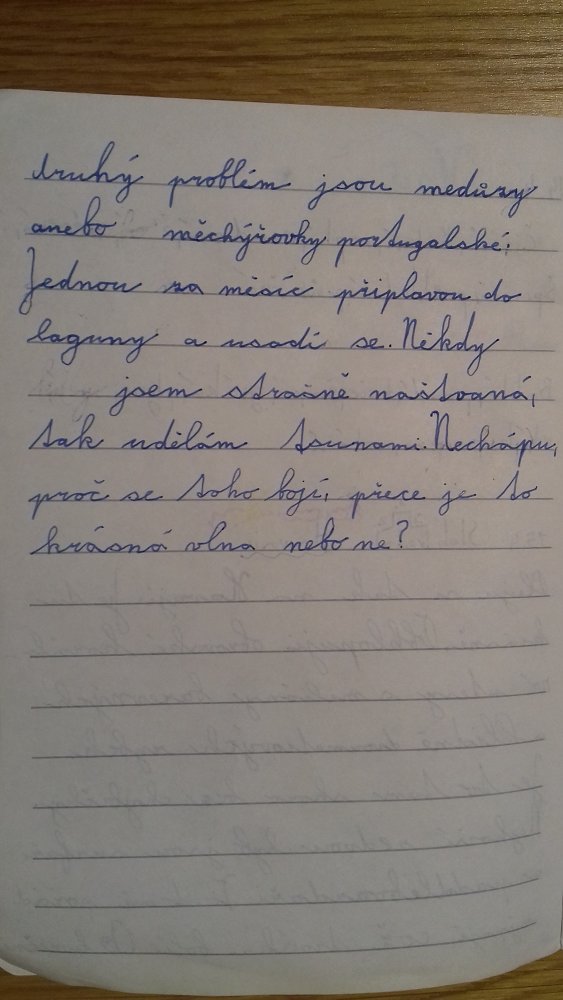 druhý problém jsou medůzy
anebo měchýřovky portugalské.
Jednou za měsíc připlavou do
laguny a usadí se. Někdy
jsem strašně naštvaná,
tak udělám tsunami. Nechápu,
proč se toho bojí, přece je to
krásná vlna nebo ne?